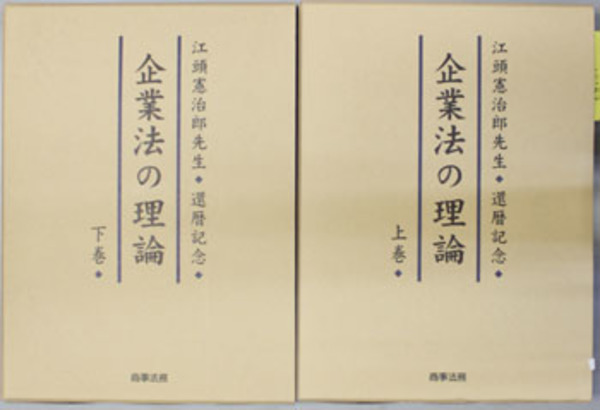 江頭憲治郎先生◆還暦記念◆
企業法の理論
上巻◆
商事法務
江頭憲治郎先生◆還暦記念◆
企業法の理論
下巻◆
商事法務